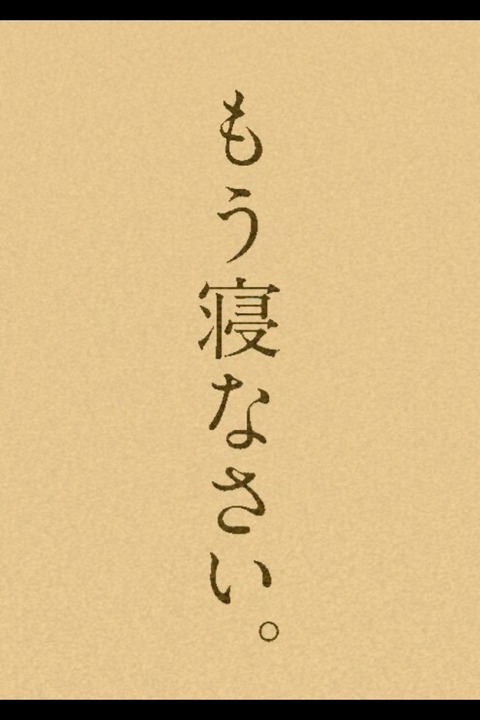 もう寝なさい。